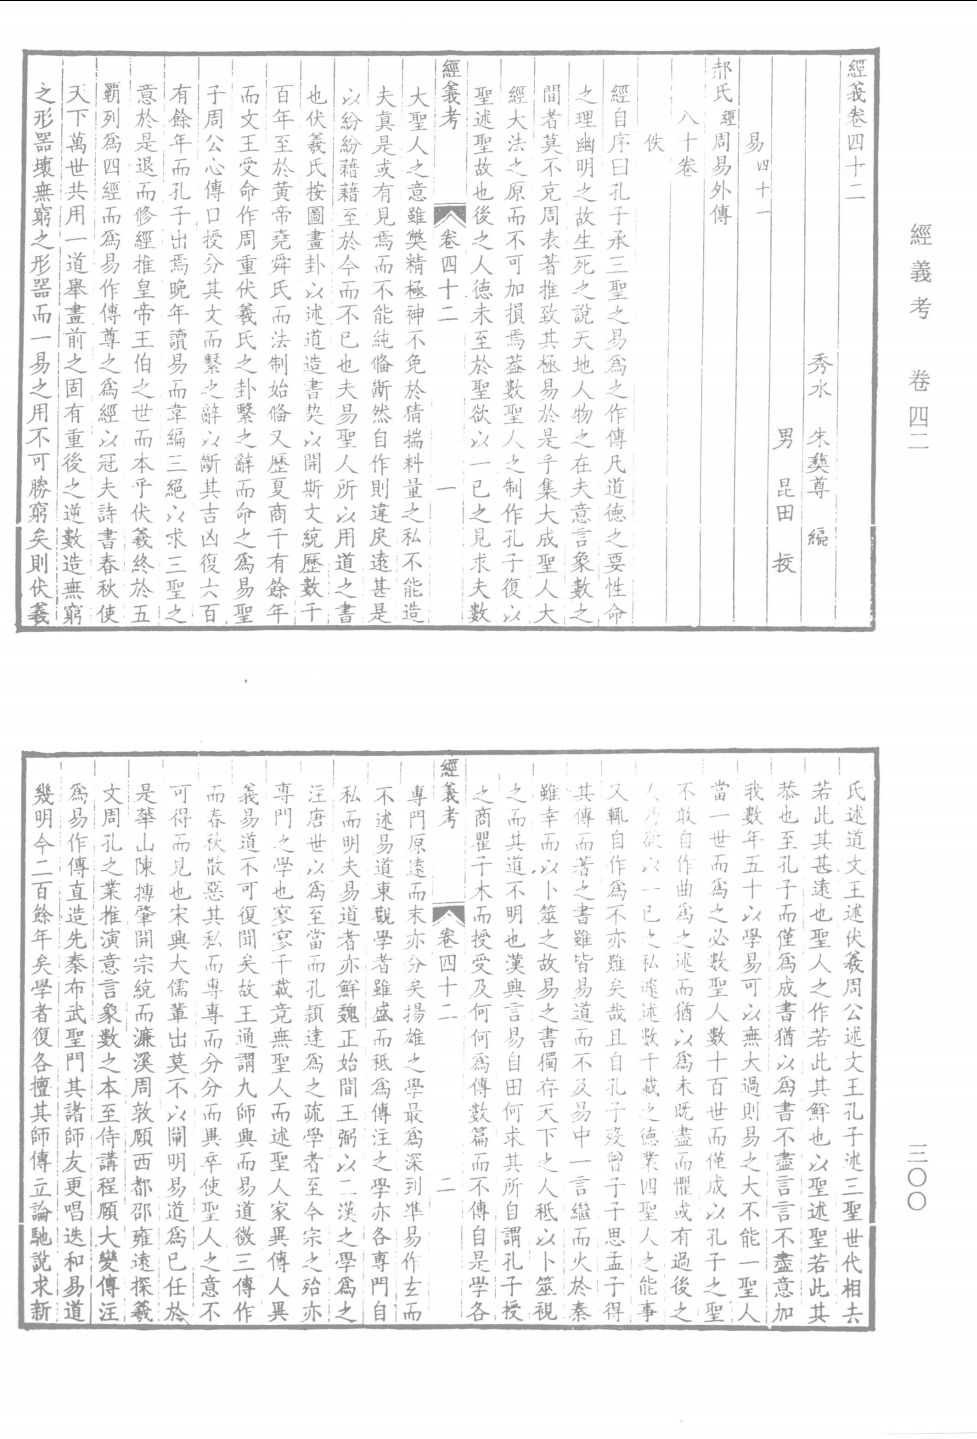 經義考 卷四二
經義卷四十二
秀水 朱彝尊 編
男 昆田 校
易四十一
郝氏經周易外傳
八十卷
佚
經自序曰孔子承三聖之易爲之作傳凡道德之要性命
之理幽明之故生死之說天地人物之在夫意言象數之
間者莫不克周表著推致其極易於是乎集大成聖人大
經大法之原而不可加損焉葢數聖人之制作孔子復以
聖述聖故也後之人德未至於聖欲以一已之見求夫數
經義考 卷四十二 一
大聖人之意雖獘精極神不免於猜揣料量之私不能造
夫真是或有見焉而不能純俻斷然自作則違戾遠甚是
以紛紛藉藉至於今而不已也夫易聖人所以用道之書
也伏羲氏按圖畫卦以述道造書契以開斯文統歷數千
百年至於黃帝堯舜氏而法制始俻又歷夏商千有餘年
而文王受命作周重伏羲氏之卦繫之辭而命之爲易聖
子周公心傳口授分其文而繫之辭以斷其吉凶復六百
有餘年而孔子出焉晚年讀易而韋編三絕以求三聖之
意於是退而修經推皇帝王伯之世而本乎伏羲終於五
霸列爲四經而爲易作傳尊之爲經以冠夫詩書春秋使
天下萬世共用一道舉畫前之固有重後之逆數造無窮
之形器壞無窮之形器而一易之用不可勝窮矣則伏羲
氏述道文王述伏羲周公述文王孔子述三聖世代相去
若此其甚遠也聖人之作若此其鮮也以聖述聖若此其
恭也至孔子而僅爲成書猶以爲書不盡言言不盡意加
我數年五十以學易可以無大過則易之大不能一聖人
當一世而爲之必數聖人數十百世而僅成以孔子之聖
不敢自作曲爲之述而猶以爲未既盡而懼或有過後之
人乃欲以一已之私違述數千載之德業四聖人之能事
又輒自作爲不亦難矣哉且自孔子歿曾子子思孟子得
其傳而著之書雖皆易道而不及易中一言繼而火於秦
雖幸而以卜筮之故易之書獨存天下之人秪以卜筮視
之而其道不明也漢興言易自田何求其所自謂孔子授
之商瞿子木而授受及何何爲傳數篇而不傳自是學各
經義考 卷四十二 二
專門原遠而末亦分矣揚雄之學最爲深到準易作玄而
不述易道東觀學者雖盛而秪爲傳注之學亦各專門自
私而明夫易道者亦鮮魏正始間王弼以二漢之學爲之
注唐世以爲至當而孔穎達爲之疏學者至今宗之殆亦
專門之學也寥寥千載竟無聖人而述聖人家異傳人異
義易道不可復聞矣故王通謂九師興而易道微三傳作
而春秋散惡其私而專專而分分而異卒使聖人之意不
可得而見也宋興大儒輩出莫不以闡明易道爲已任於
是華山陳摶肇開宗統而濂溪周敦頤西都邵雍遠探羲
文周孔之業推演意言象數之本至侍講程頤大變傳注
爲易作傳直造先秦布武聖門其諸師友更唱迭和易道
幾明今二百餘年矣學者復各擅其師傳立論馳說求新
三〇〇